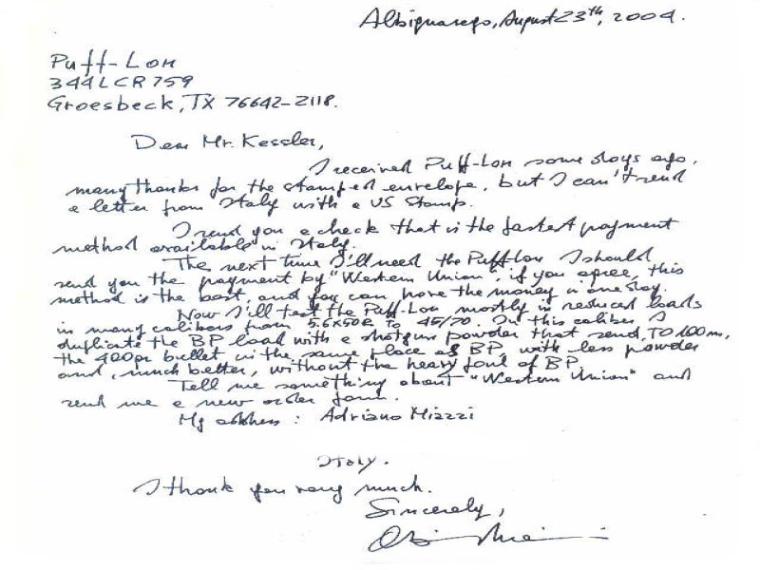 Albignasego, August 23th, 2004.
Puff-Lon
344 LCR 759
Groesbeck, TX 76642-2118.
Dear Mr. Kessler,
I received Puff-Lon some days ago,
many thanks for the stamped envelope, but I can't send
a letter from Italy with a US stamp.
I send you a check that is the fastest payment
method available in Italy.
The next time I'll need the Puff-Lon I should
send you the payment by "Western Union", if you agree, this
method is the best, and you can have the money in one day.
Now I'll test the Puff-Lon mostly in reduced loads
in many calibers from 5.6x50R to 45/70. In this caliber I
duplicate the BP load with a shotgun powder that send, TO 100 m,
the 400 gr bullet in the same place as BP, with less powder
and, much better, without the heavy foul of BP.
Tell me something about "Western Union" and
send me a new order form.
My address : Adriano Miazzi
Italy.
I thank you very much.
Sincerely,